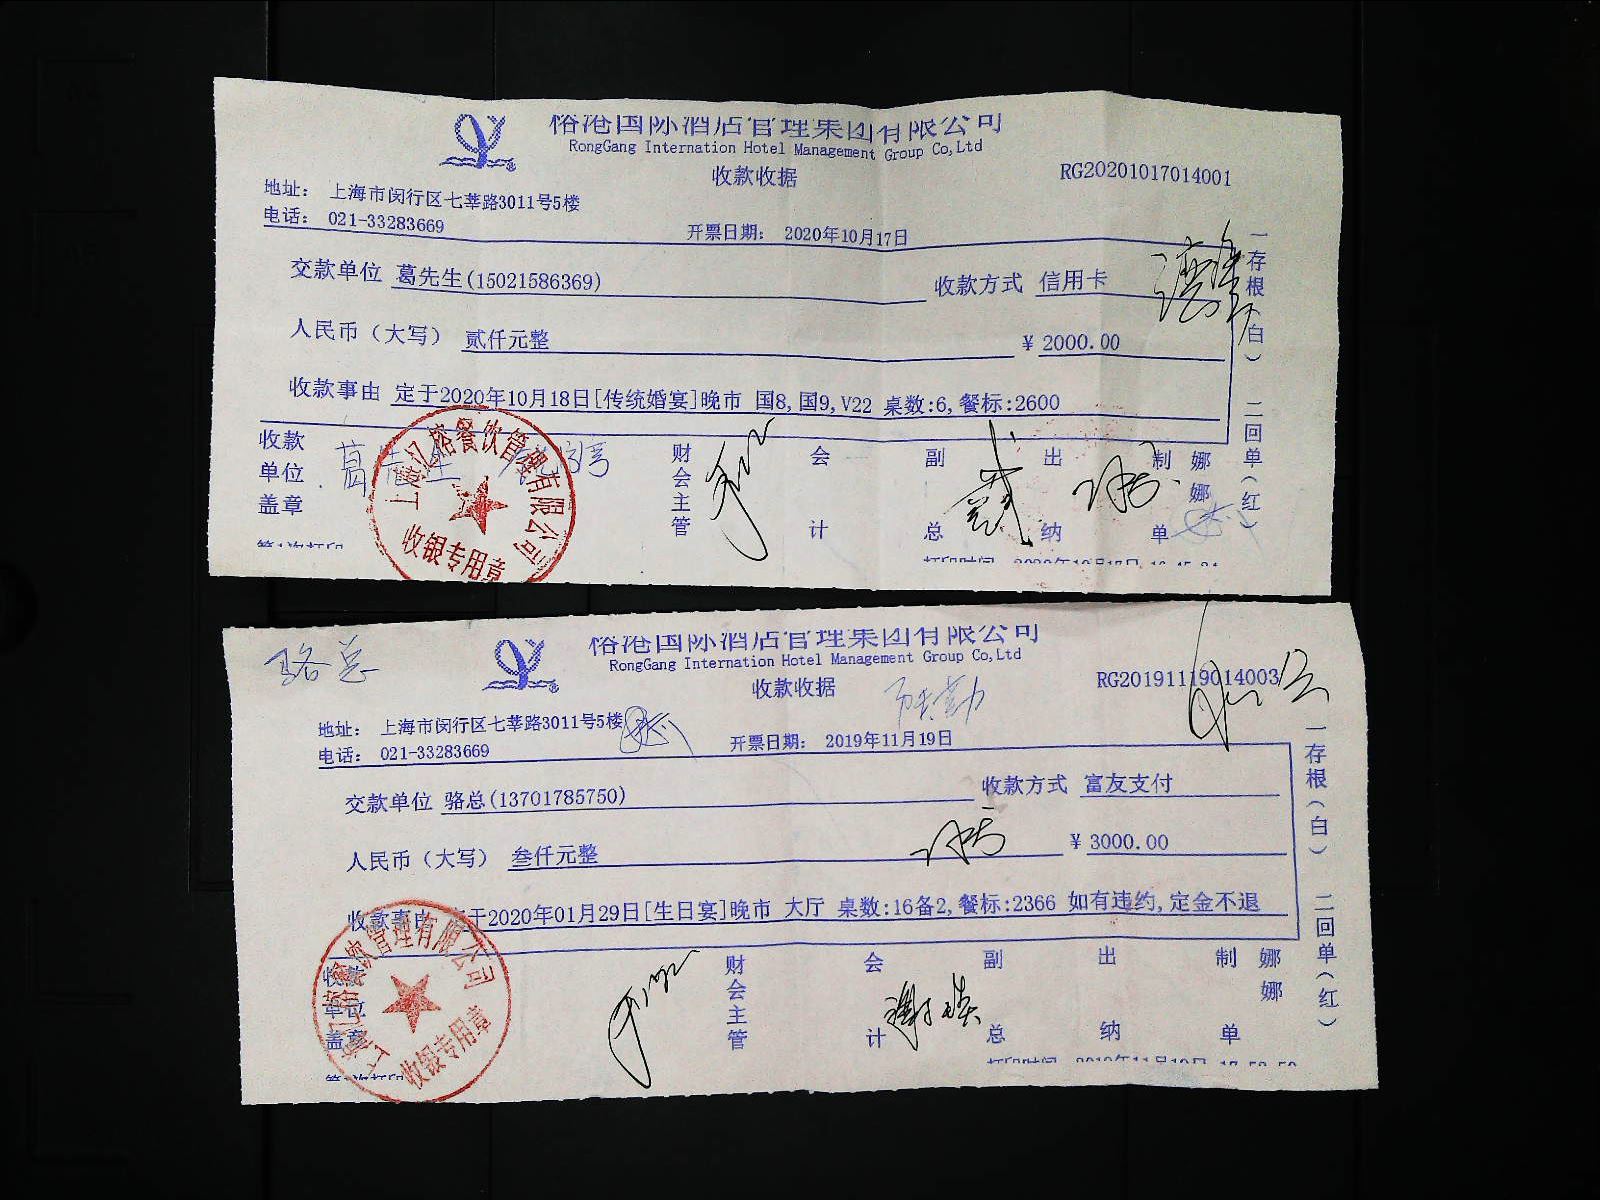 裕港国际酒店管理集团有限公司
RongGang Internation Hotel Management Group Co,Ltd
收款收据
RG20201017014001
地址: 上海市闵行区七莘路3011号5楼
电话: 021-33283669
开票日期: 2020年10月17日
交款单位 葛先生(15021586369) 收款方式 信用卡
人民币(大写) 贰仟元整 ¥2000.00
收款事由 定于2020年10月18日[传统婚宴]晚市 国8,国9,V22 桌数:6,餐标:2600
一存根(白) 二回单(红)
收款单位盖章 葛先生
财会主管 会计 副总 出纳 制单 娜娜
餐饮管理有限公司
收银专用章
第1次打印
打印时间 2020年10月17日
骆总
裕港国际酒店管理集团有限公司
RongGang Internation Hotel Management Group Co,Ltd
收款收据
RG20191119014003
地址: 上海市闵行区七莘路3011号5楼
电话: 021-33283669
开票日期: 2019年11月19日
交款单位 骆总(13701785750) 收款方式 富友支付
人民币(大写) 叁仟元整 ¥3000.00
收款事由 定于2020年01月29日[生日宴]晚市 大厅 桌数:16备2,餐标:2366 如有违约,定金不退
一存根(白) 二回单(红)
收款单位盖章
财会主管 会计 副总 出纳 制单 娜娜
餐饮管理有限公司
收银专用章
第1次打印
打印时间 2019年11月19日